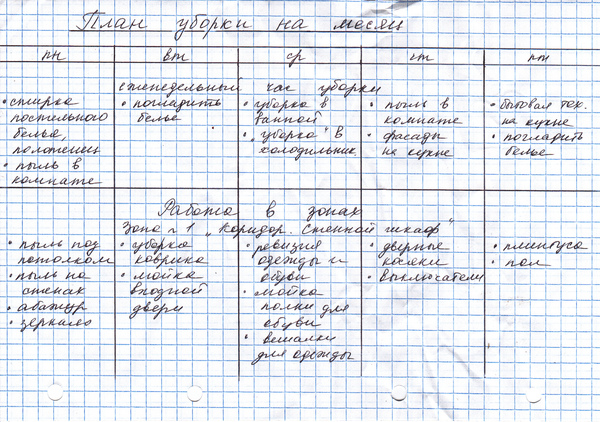 План уборки на месяц
пн вт ср чт пт
еженедельный час уборки
• стирка
постельного
белье,
полотенец
• пыль в
комнате
• погладить
белье
• уборка в
ванной
• „уборка“ в
холодильник.
• пыль в
комнате
• фасады
на кухне
• бытовая тех.
на кухне
• погладить
белье
Работа в зонах
Зона №1 „Коридор. Стенной шкаф“
• пыль под
потолком
• пыль на
стенах
• абажур
• зеркало
• уборка
коврика
• мойка
входной
двери
• ревизия
одежды и
обуви
• мойка
полки для
обуви
• вешалки
для одежды
• дверные
касяки
• выключатели
• плинтуса
• пол